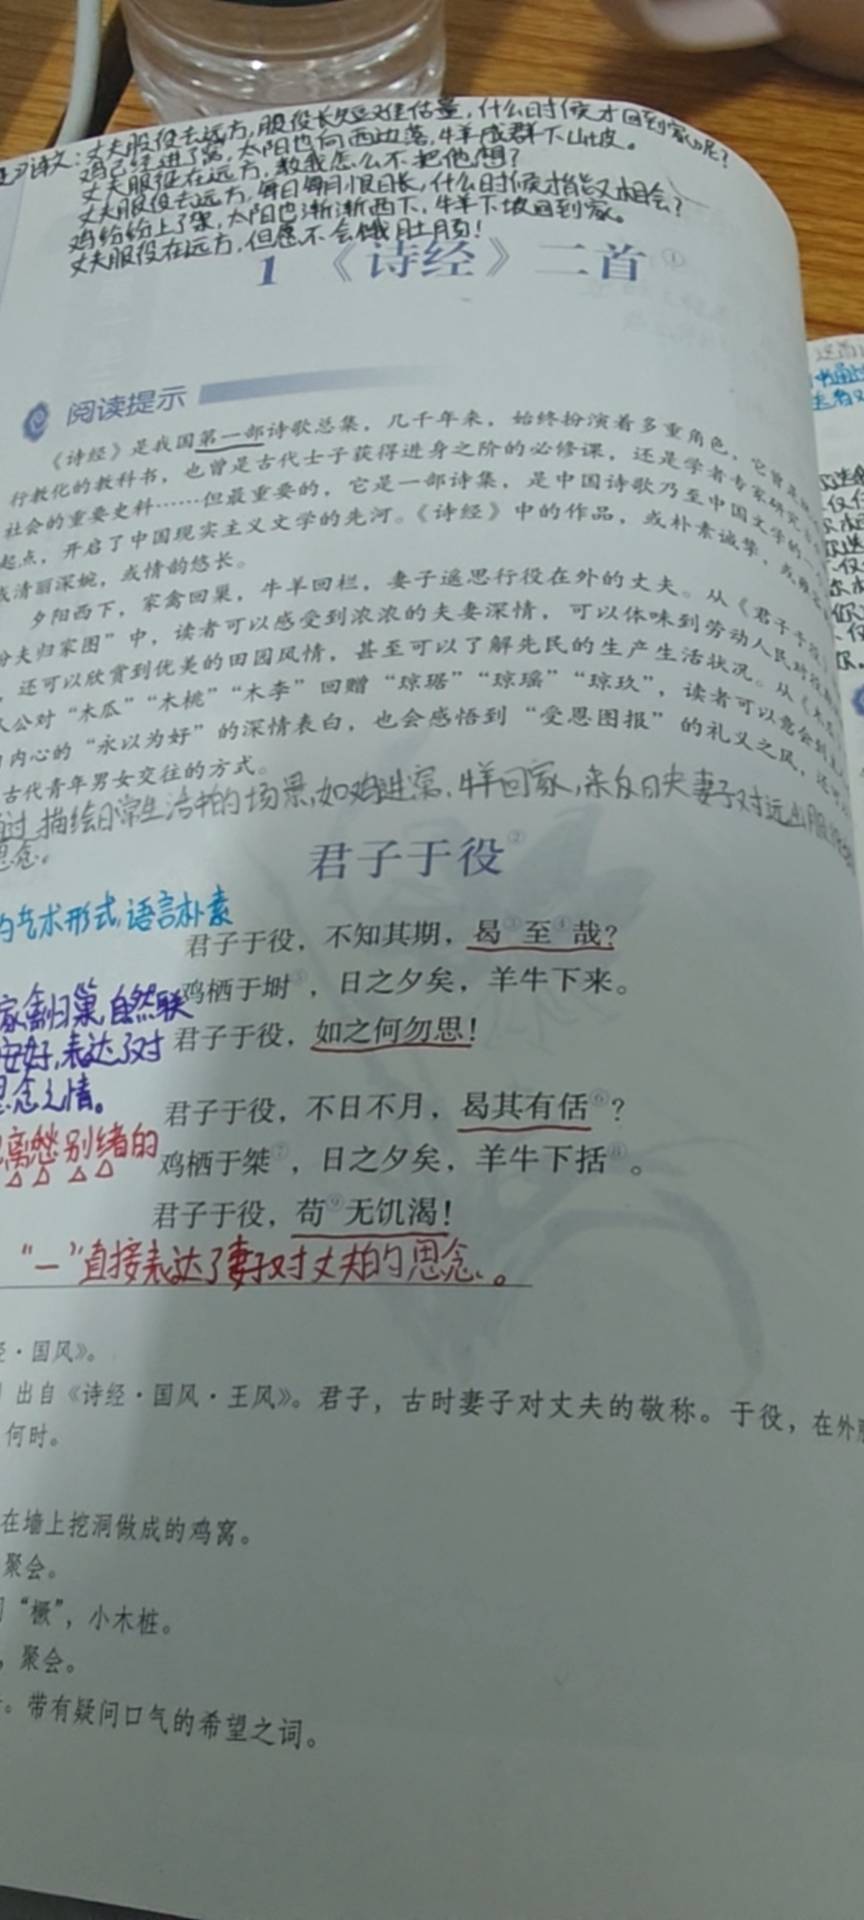 译文：丈夫服役去远方，服役长短难估量，什么时候才回到家呢？
鸡已经进了窝，太阳也向西边落，牛羊成群下山坡。
丈夫服征在远方，教我怎么不把他想？
丈夫服役去远方，每日每月恨日长，什么时候才能又相会？
鸡纷纷上了架，太阳也渐渐西下，牛羊下坡回到家。
丈夫服役在远方，但愿不会饿肚肠！
1 《诗经》二首①
阅读提示
《诗经》是我国第一部诗歌总集，几千年来，始终扮演着多重角色，它曾是
行教化的教科书，也曾是古代士子获得进身之阶的必修课，还是学者专家研究
社会的重要史料……但最重要的，它是一部诗集，是中国诗歌乃至中国文学的一
起点，开启了中国现实主义文学的先河。《诗经》中的作品，或朴素诚挚，或
或清丽深婉，或情韵悠长。
夕阳西下，家禽回巢，牛羊回栏，妻子遥思行役在外的丈夫。从《君子于役》
夫归家图”中，读者可以感受到浓浓的夫妻深情，可以体味到劳动人民对
，还可以欣赏到优美的田园风情，甚至可以了解先民的生产生活状况。从《木瓜》
公对“木瓜”“木桃”“木李”回赠“琼琚”“琼瑶”“琼玖”，读者可以意会到
内心的“永以为好”的深情表白，也会感悟到“受恩图报”的礼义之风，还
古代青年男女交往的方式。
过描绘日常生活中的场景，如鸡进窝，牛羊回家，来反日夫妻子对远出服
思念。
君子于役②
的艺术形式，语言朴素
君子于役，不知其期，曷③至④哉？
家禽归巢，自然联
鸡栖于埘⑤，日之夕矣，羊牛下来。
安好，表达了对
君子于役，如之何勿思！
思念之情。
君子于役，不日不月，曷其有佸⑥？
离愁别绪的
鸡栖于桀⑦，日之夕矣，羊牛下括⑧。
君子于役，苟⑨无饥渴！
“一”直接表达了妻子对丈夫的思念。
·国风》。
出自《诗经·国风·王风》。君子，古时妻子对丈夫的敬称。于役，在外
何时。
在墙上挖洞做成的鸡窝。
聚会。
“橛”，小木桩。
，聚会。
。带有疑问口气的希望之词。